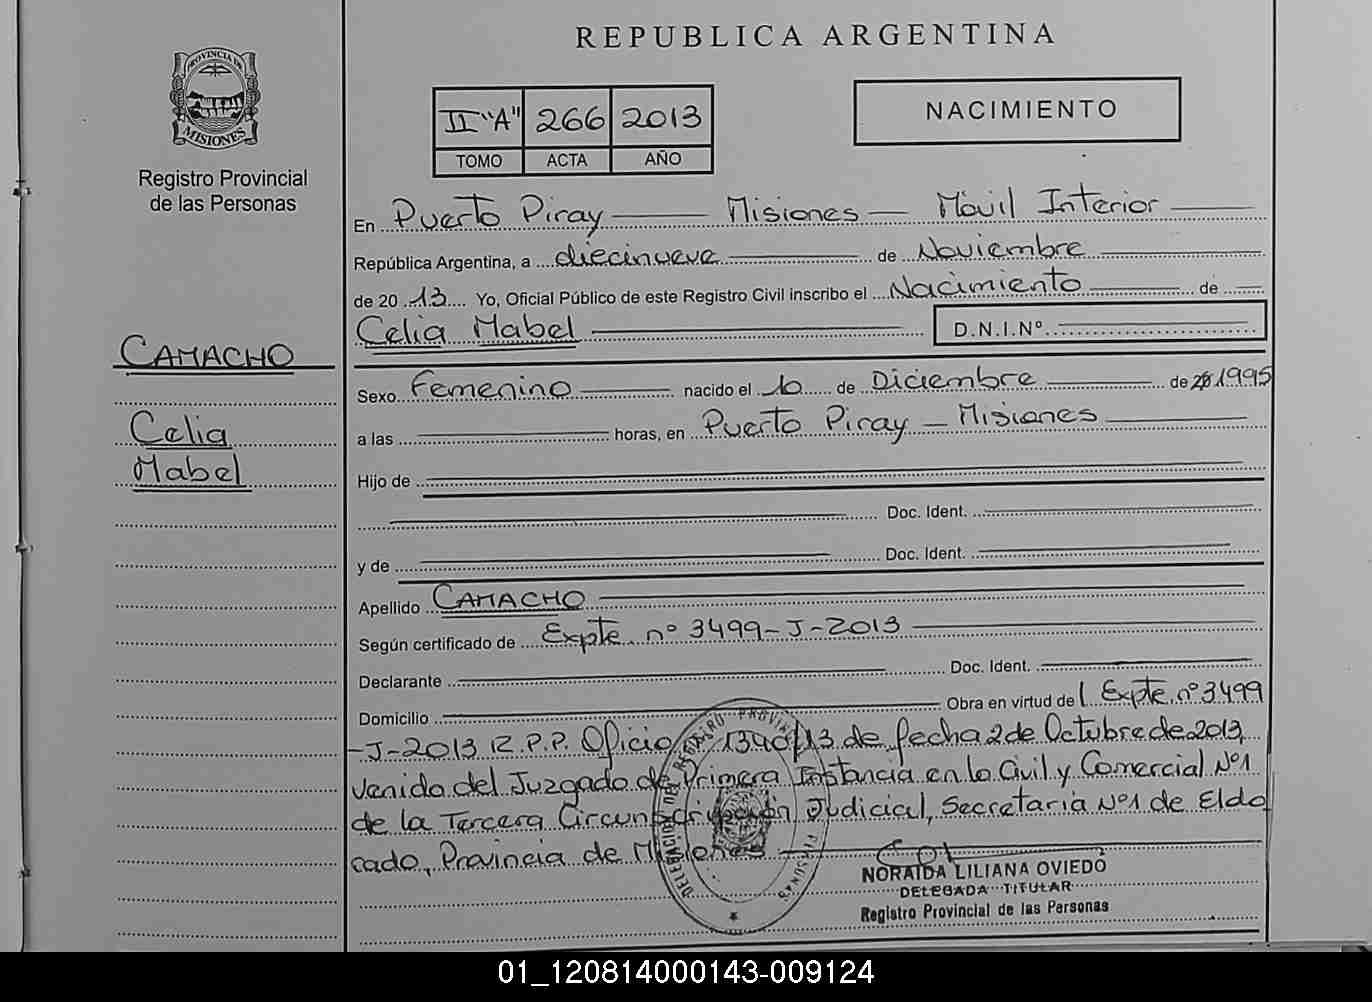 REPUBLICA ARGENTINA
PROVINCIA DE
MISIONES
Registro Provincial
de las Personas
II "A" 266 2013
TOMO ACTA AÑO
NACIMIENTO
En Puerto Piray Misiones Movil Interior
República Argentina, a diecinueve de Noviembre
de 20 13 Yo, Oficial Público de este Registro Civil inscribo el Nacimiento de
Celia Mabel D.N.I.Nº
CAMACHO
Celia
Mabel
Sexo Femenino nacido el 10 de Diciembre de 1995
a las horas, en Puerto Piray - Misiones
Hijo de
Doc. Ident.
y de Doc. Ident.
Apellido CAMACHO
Según certificado de Expte. nº 3499-J-2013
Declarante Doc. Ident.
Domicilio Obra en virtud del Expte. nº 3499
-J-2013 R.P.P. Oficio 1340/13 de fecha 2 de Octubre de 2013,
venido del Juzgado de Primera Instancia en lo Civil y Comercial Nº1
de la Tercera Circunscripción Judicial, Secretaria Nº1 de Eldo
rado, Provincia de Misiones
DELEGACION DEL REGISTRO PROVINCIAL PERSONAS
NORAIDA LILIANA OVIEDO
DELEGADA TITULAR
Registro Provincial de las Personas
01_120814000143-009124